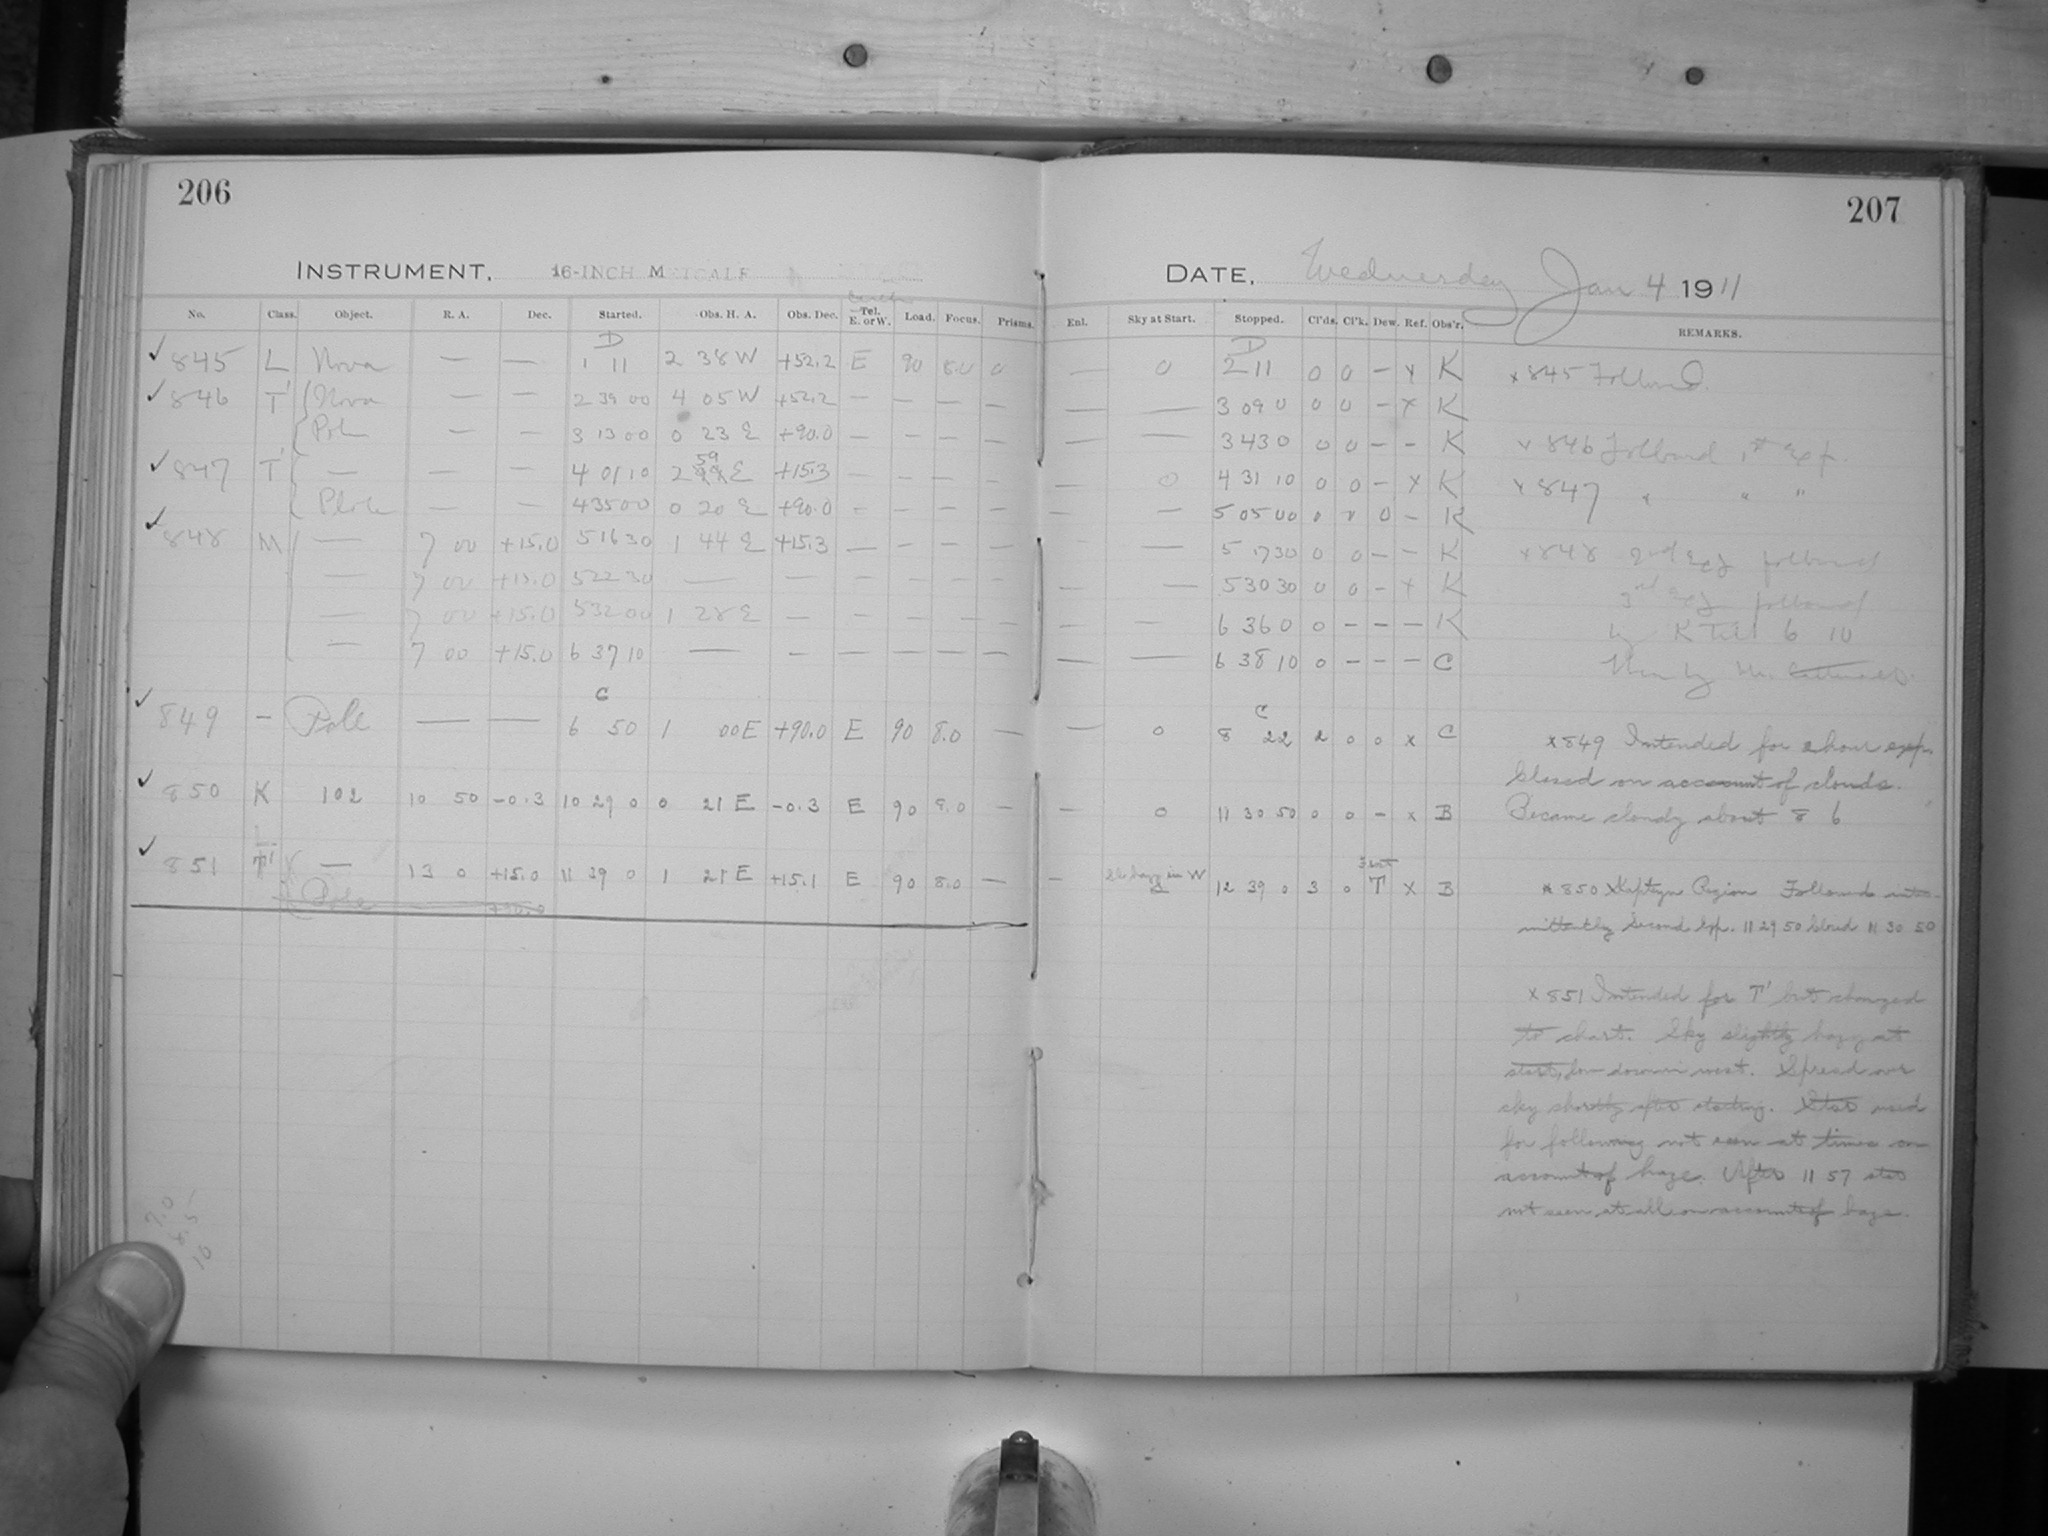 206
INSTRUMENT, 16-INCH METCALF
No. Class. Object. R. A. Dec. Started. Obs. H. A. Obs. Dec. Tel. E. or W. Load. Focus. Prisms.
D
845 L Nova — — 1 11 2 38 W +52.2 E 90 8.0 0
846 T' Nova — — 2 39 00 4 05 W +52.2 — — — —
Pole — — 3 13 00 0 23 E +90.0 — — — —
59
847 T' — 4 01 10 2 E +15.3 — — — —
— — 4 35 00 0 20 E +90.0 — — — —
848 M — 7 00 +15.0 5 16 30 1 44 E +15.3 — — — —
— 7 00 +15.0 5 22 30 — — — — — —
— 7 00 +15.0 5 32 00 1 28 E — — — — —
— 7 00 +15.0 6 37 10 — — — — — —
C
849 — Pole — — 6 50 1 00 E +90.0 E 90 8.0 —
850 K 102 10 50 -0.3 10 29 0 0 21 E -0.3 E 90 8.0 —
851 T' — 13 0 +15.0 11 39 0 1 21 E +15.1 E 90 8.0 —
Pole — +90.0
7.0
8.5
10
207
DATE, Wednesday Jan 4 1911
Enl. Sky at Start. Stopped. Cl'ds. Cl'k. Dew. Ref. Obs'r. REMARKS.
D
— 0 2 11 0 0 — x K x 845 Followed.
— — 3 09 0 0 0 — x K
— — 3 43 0 0 0 — — K x 846 Followed 1st Exp.
— 0 4 31 10 0 0 — x K x 847 " " "
— — 5 05 00 0 0 0 — K
— 5 17 30 0 0 — — K x 848 2nd Exp followed
— — 5 30 30 0 0 — x K 3rd Exp followed
— — 6 36 0 0 — — — K by K till 6 10
— — 6 38 10 0 — — — C Then by Mr.
C
— 0 8 22 2 0 0 x C x 849 Intended for 2 hour exp.
Closed on account of clouds.
— 0 11 30 50 0 0 — x B Became cloudy about 8 6
— Sl. hazy in W 2 12 39 0 3 0 T x B x 850 Kapteyn Region Followed inter-
mittently Second Exp. 11 29 50 Closed 11 30 50
x 851 Intended for T' but changed
to chart. Sky slightly hazy at
start, low down in west. Spread over
sky shortly after starting. Star used
for following not seen at times on
account of haze. After 11 57 star
not seen at all on account of haze.